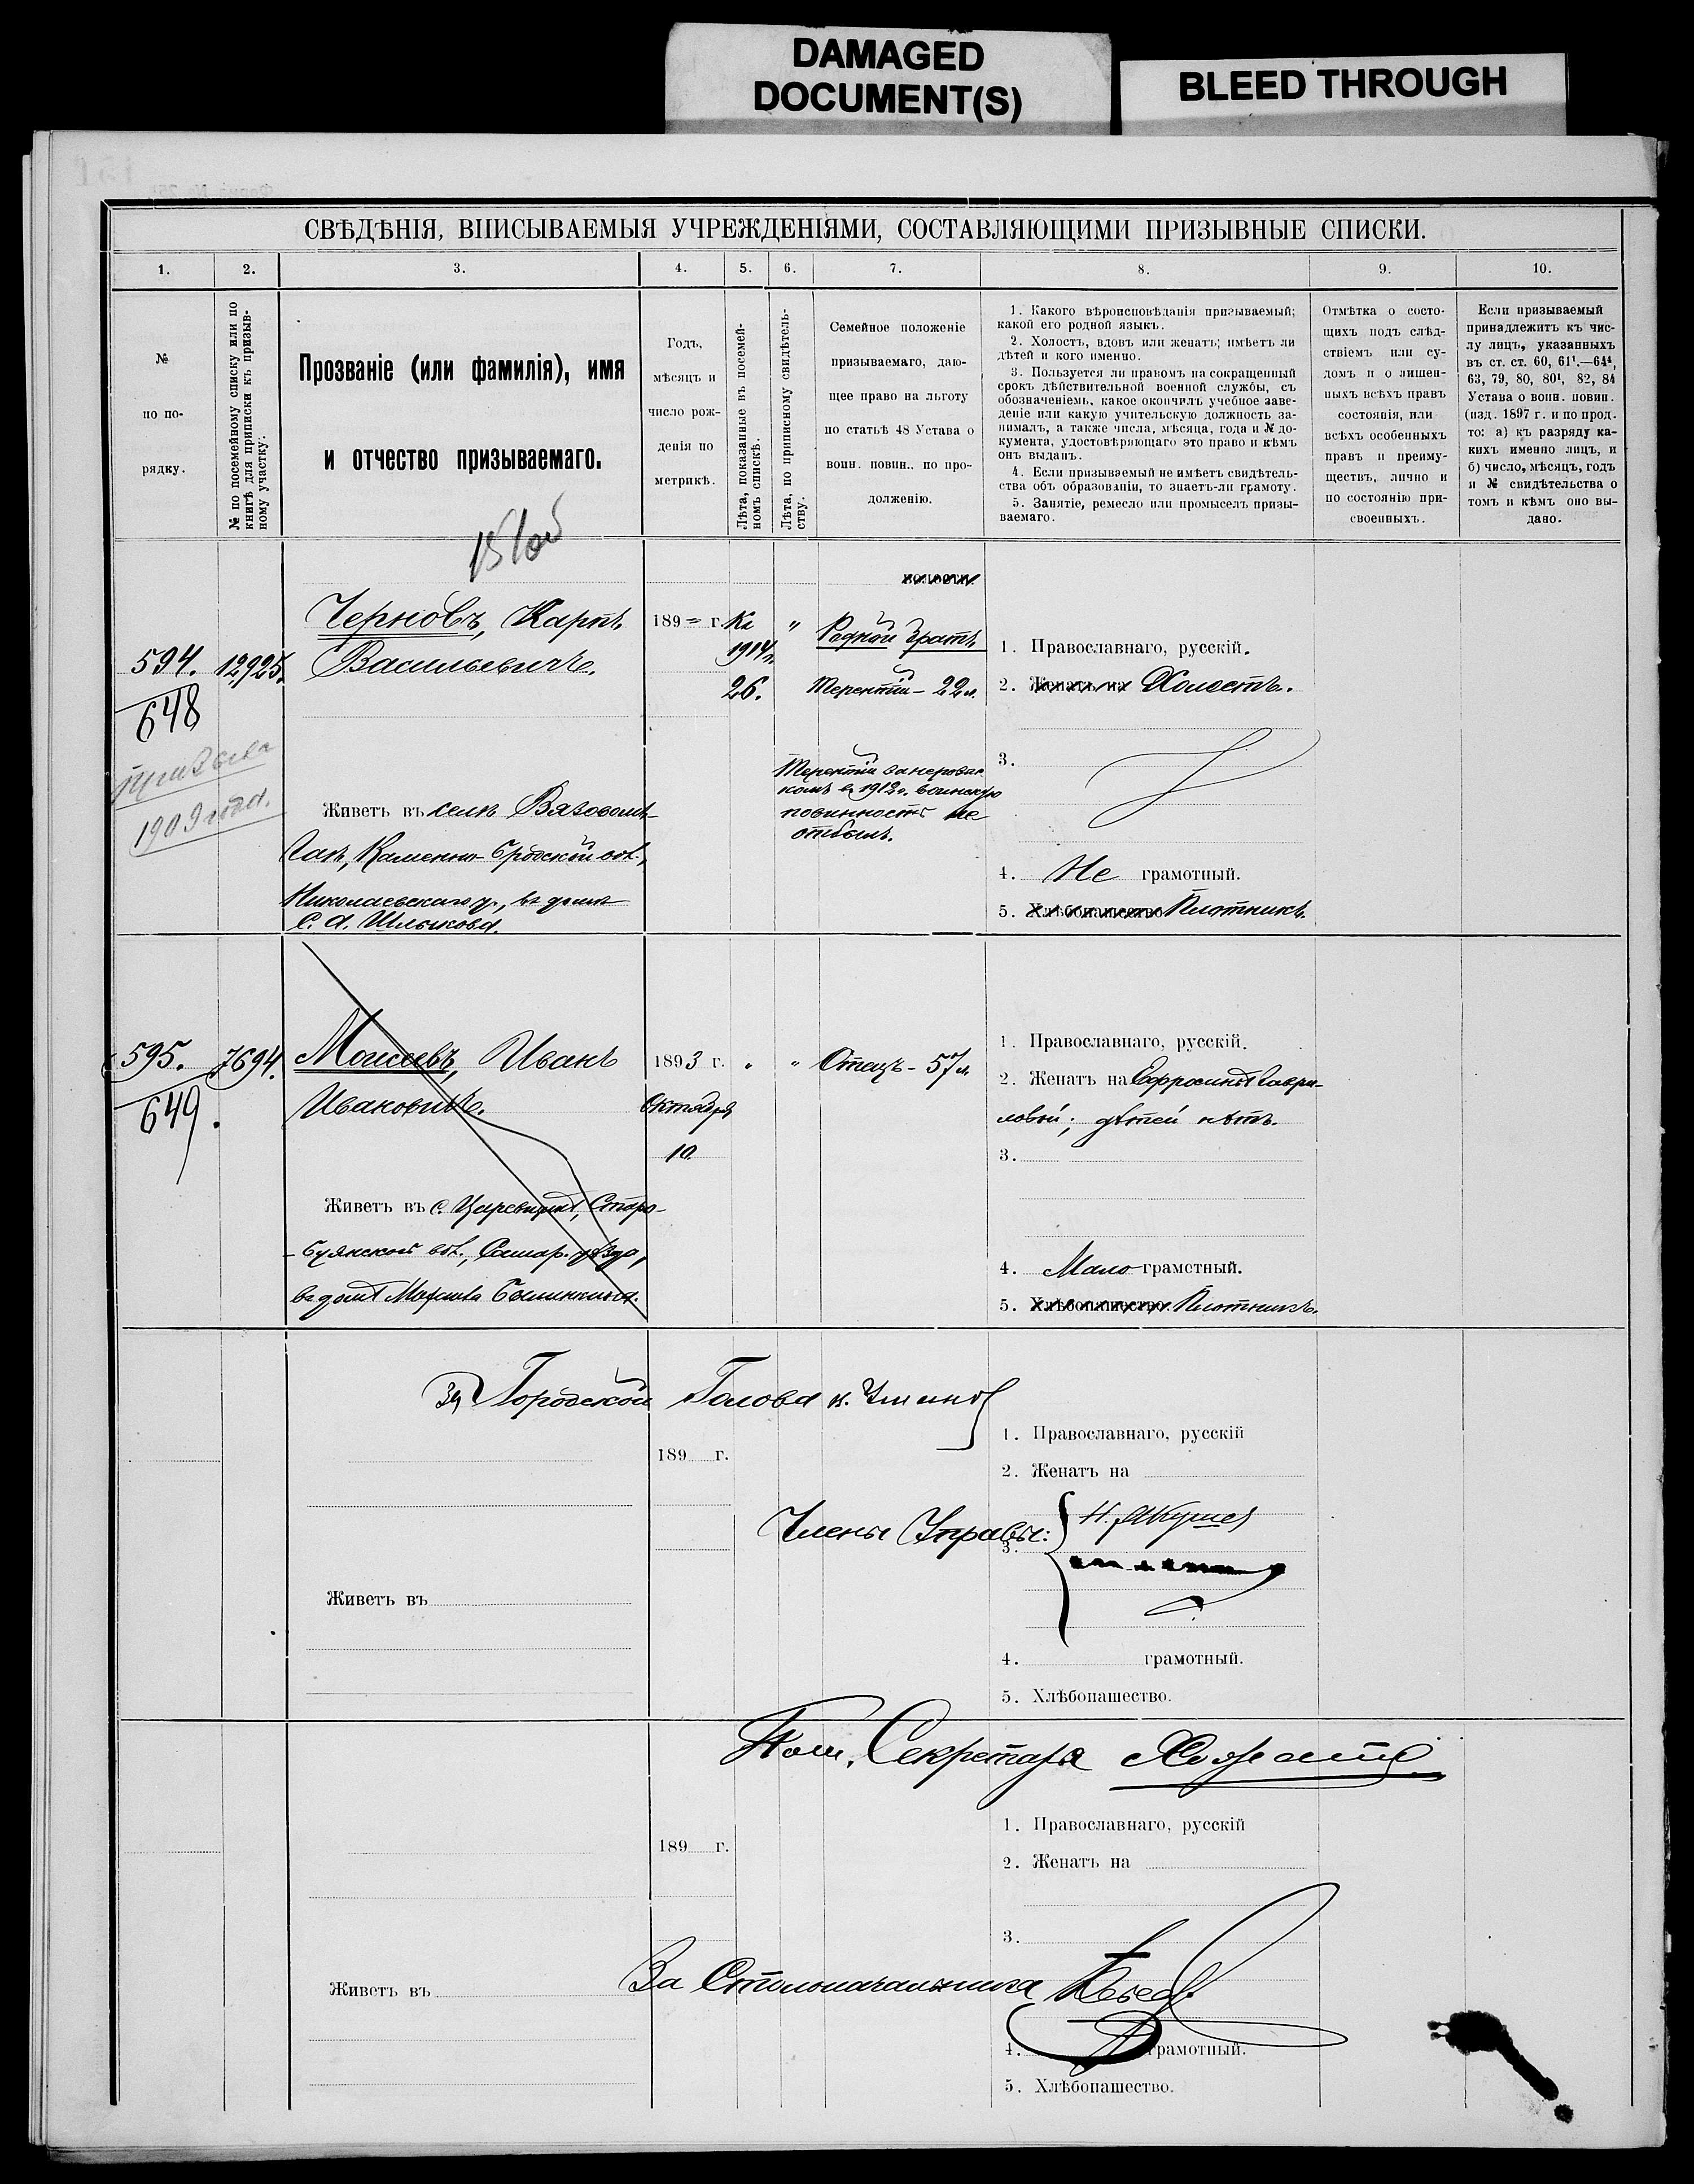 DAMAGED
DOCUMENT(S)
BLEED THROUGH
СВѢДѢНІЯ, ВПИСЫВАЕМЫЯ УЧРЕЖДЕНІЯМИ, СОСТАВЛЯЮЩИМИ ПРИЗЫВНЫЕ СПИСКИ.
1. 2. 3. 4. 5. 6. 7. 8. 9. 10.
№
по по-
рядку.
№ по посемейному списку или по
книгѣ для приписки къ призыв-
ному участку.
Прозваніе (или фамилія), имя
и отчество призываемаго.
Годъ,
мѣсяцъ и
число рож-
денія по
метрикѣ.
Лѣта, показанные въ посемей-
номъ спискѣ.
Лѣта, по приписному свидѣтель-
ству.
Семейное положеніе
призываемаго, даю-
щее право на льготу
по статьѣ 48 Устава о
воин. повин.. по про-
долженію.
1. Какого вѣроисповѣданія призываемый;
какой его родной языкъ.
2. Холостъ, вдовъ или женатъ; имѣетъ ли
дѣтей и кого именно.
3. Пользуется ли правомъ на сокращенный
срокъ дѣйствительной военной службы, съ
обозначеніемъ, какое окончилъ учебное заве-
деніе или какую учительскую должность за-
нималъ, а также числа, мѣсяца, года и № до-
кумента, удостовѣряющаго это право и кѣмъ
онъ выданъ.
4. Если призываемый не имѣетъ свидѣтель-
ства объ образованіи, то знаетъ-ли грамоту.
5. Занятіе, ремесло или промыселъ призы-
ваемаго.
Отмѣтка о состо-
щихъ подъ слѣд-
ствіемъ или су-
домъ и о лишен-
ныхъ всѣхъ правъ
состоянія, или
всѣхъ особенныхъ
правъ и преиму-
ществъ, лично и
по состоянію при-
своенныхъ.
Если призываемый
принадлежитъ къ чис-
лу лицъ, указанныхъ
въ ст. ст. 60, 61¹.—64⁴,
63, 79, 80, 80¹, 82, 84
Устава о воин. повин.
(изд. 1897 г. и по прод.
то: а) къ разряду ка-
кихъ именно лицъ, и
б) число, мѣсяцъ, годъ
и № свидѣтельства о
томъ и кѣмъ оно вы-
дано.
594.
648
призыва
1909 года.
12925.
Черновъ, Карпъ
Васильевичъ.
Живетъ въ селѣ Вязовомъ-
Гаѣ, Каменно-Бродской вол.,
Николаевскаго у., въ домѣ
С. А. Шлыкова.
189 = г.
Къ
1914 г.
26.
"
Родной братъ
Терентій - 22 л.
Терентій
въ 1912 г. воинскую
повинность не
отбылъ.
1. Православнаго, русскій.
2. Женатъ на Холостъ.
3.
4. Не грамотный.
5. Хлѣбопашество Плотникъ.
595.
649.
7694.
Моисеевъ, Иванъ
Ивановичъ.
Живетъ въ с. Царевщинѣ, Старо-
-Буянской вол., Самар. уѣзда,
въ домѣ
1893 г.
Октября
10.
" "
Отецъ - 57 л.
1. Православнаго, русскій.
2. Женатъ на Ефросиньѣ Гаври-
ловой; дѣтей нѣтъ.
3.
4. Мало грамотный.
5. Хлѣбопашество. Плотникъ.
За Городской Голова
189 г.
Живетъ въ
Члены Управы:
1. Православнаго, русскій
2. Женатъ на
3.
4. грамотный.
5. Хлѣбопашество.
Пом. Секретаря
189 г.
Живетъ въ
1. Православнаго, русскій
2. Женатъ на
3.
За Столоначальника
4. грамотный.
5. Хлѣбопашество.